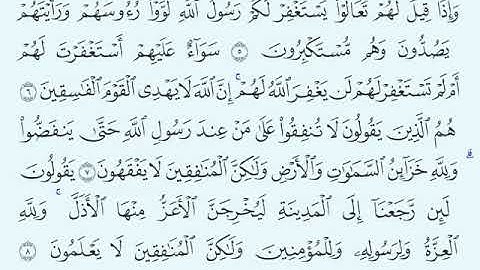 وَإِذَا قِيلَ لَهُمْ تَعَالَوْا۟ يَسْتَغْفِرْ لَكُمْ رَسُولُ ٱللَّهِ لَوَّوْا۟ رُءُوسَهُمْ وَرَأَيْتَهُمْ
يَصُدُّونَ وَهُم مُّسْتَكْبِرُونَ ٥ سَوَآءٌ عَلَيْهِمْ أَسْتَغْفَرْتَ لَهُمْ
أَمْ لَمْ تَسْتَغْفِرْ لَهُمْ لَن يَغْفِرَ ٱللَّهُ لَهُمْ ۚ إِنَّ ٱللَّهَ لَا يَهْدِى ٱلْقَوْمَ ٱلْفَـٰسِقِينَ ٦
هُمُ ٱلَّذِينَ يَقُولُونَ لَا تُنفِقُوا۟ عَلَىٰ مَنْ عِندَ رَسُولِ ٱللَّهِ حَتَّىٰ يَنفَضُّوا۟ ۗ
وَلِلَّهِ خَزَآئِنُ ٱلسَّمَـٰوَٰتِ وَٱلْأَرْضِ وَلَـٰكِنَّ ٱلْمُنَـٰفِقِينَ لَا يَفْقَهُونَ ٧ يَقُولُونَ
لَئِن رَّجَعْنَآ إِلَى ٱلْمَدِينَةِ لَيُخْرِجَنَّ ٱلْأَعَزُّ مِنْهَا ٱلْأَذَلَّ ۚ وَلِلَّهِ
ٱلْعِزَّةُ وَلِرَسُولِهِۦ وَلِلْمُؤْمِنِينَ وَلَـٰكِنَّ ٱلْمُنَـٰفِقِينَ لَا يَعْلَمُونَ ٨